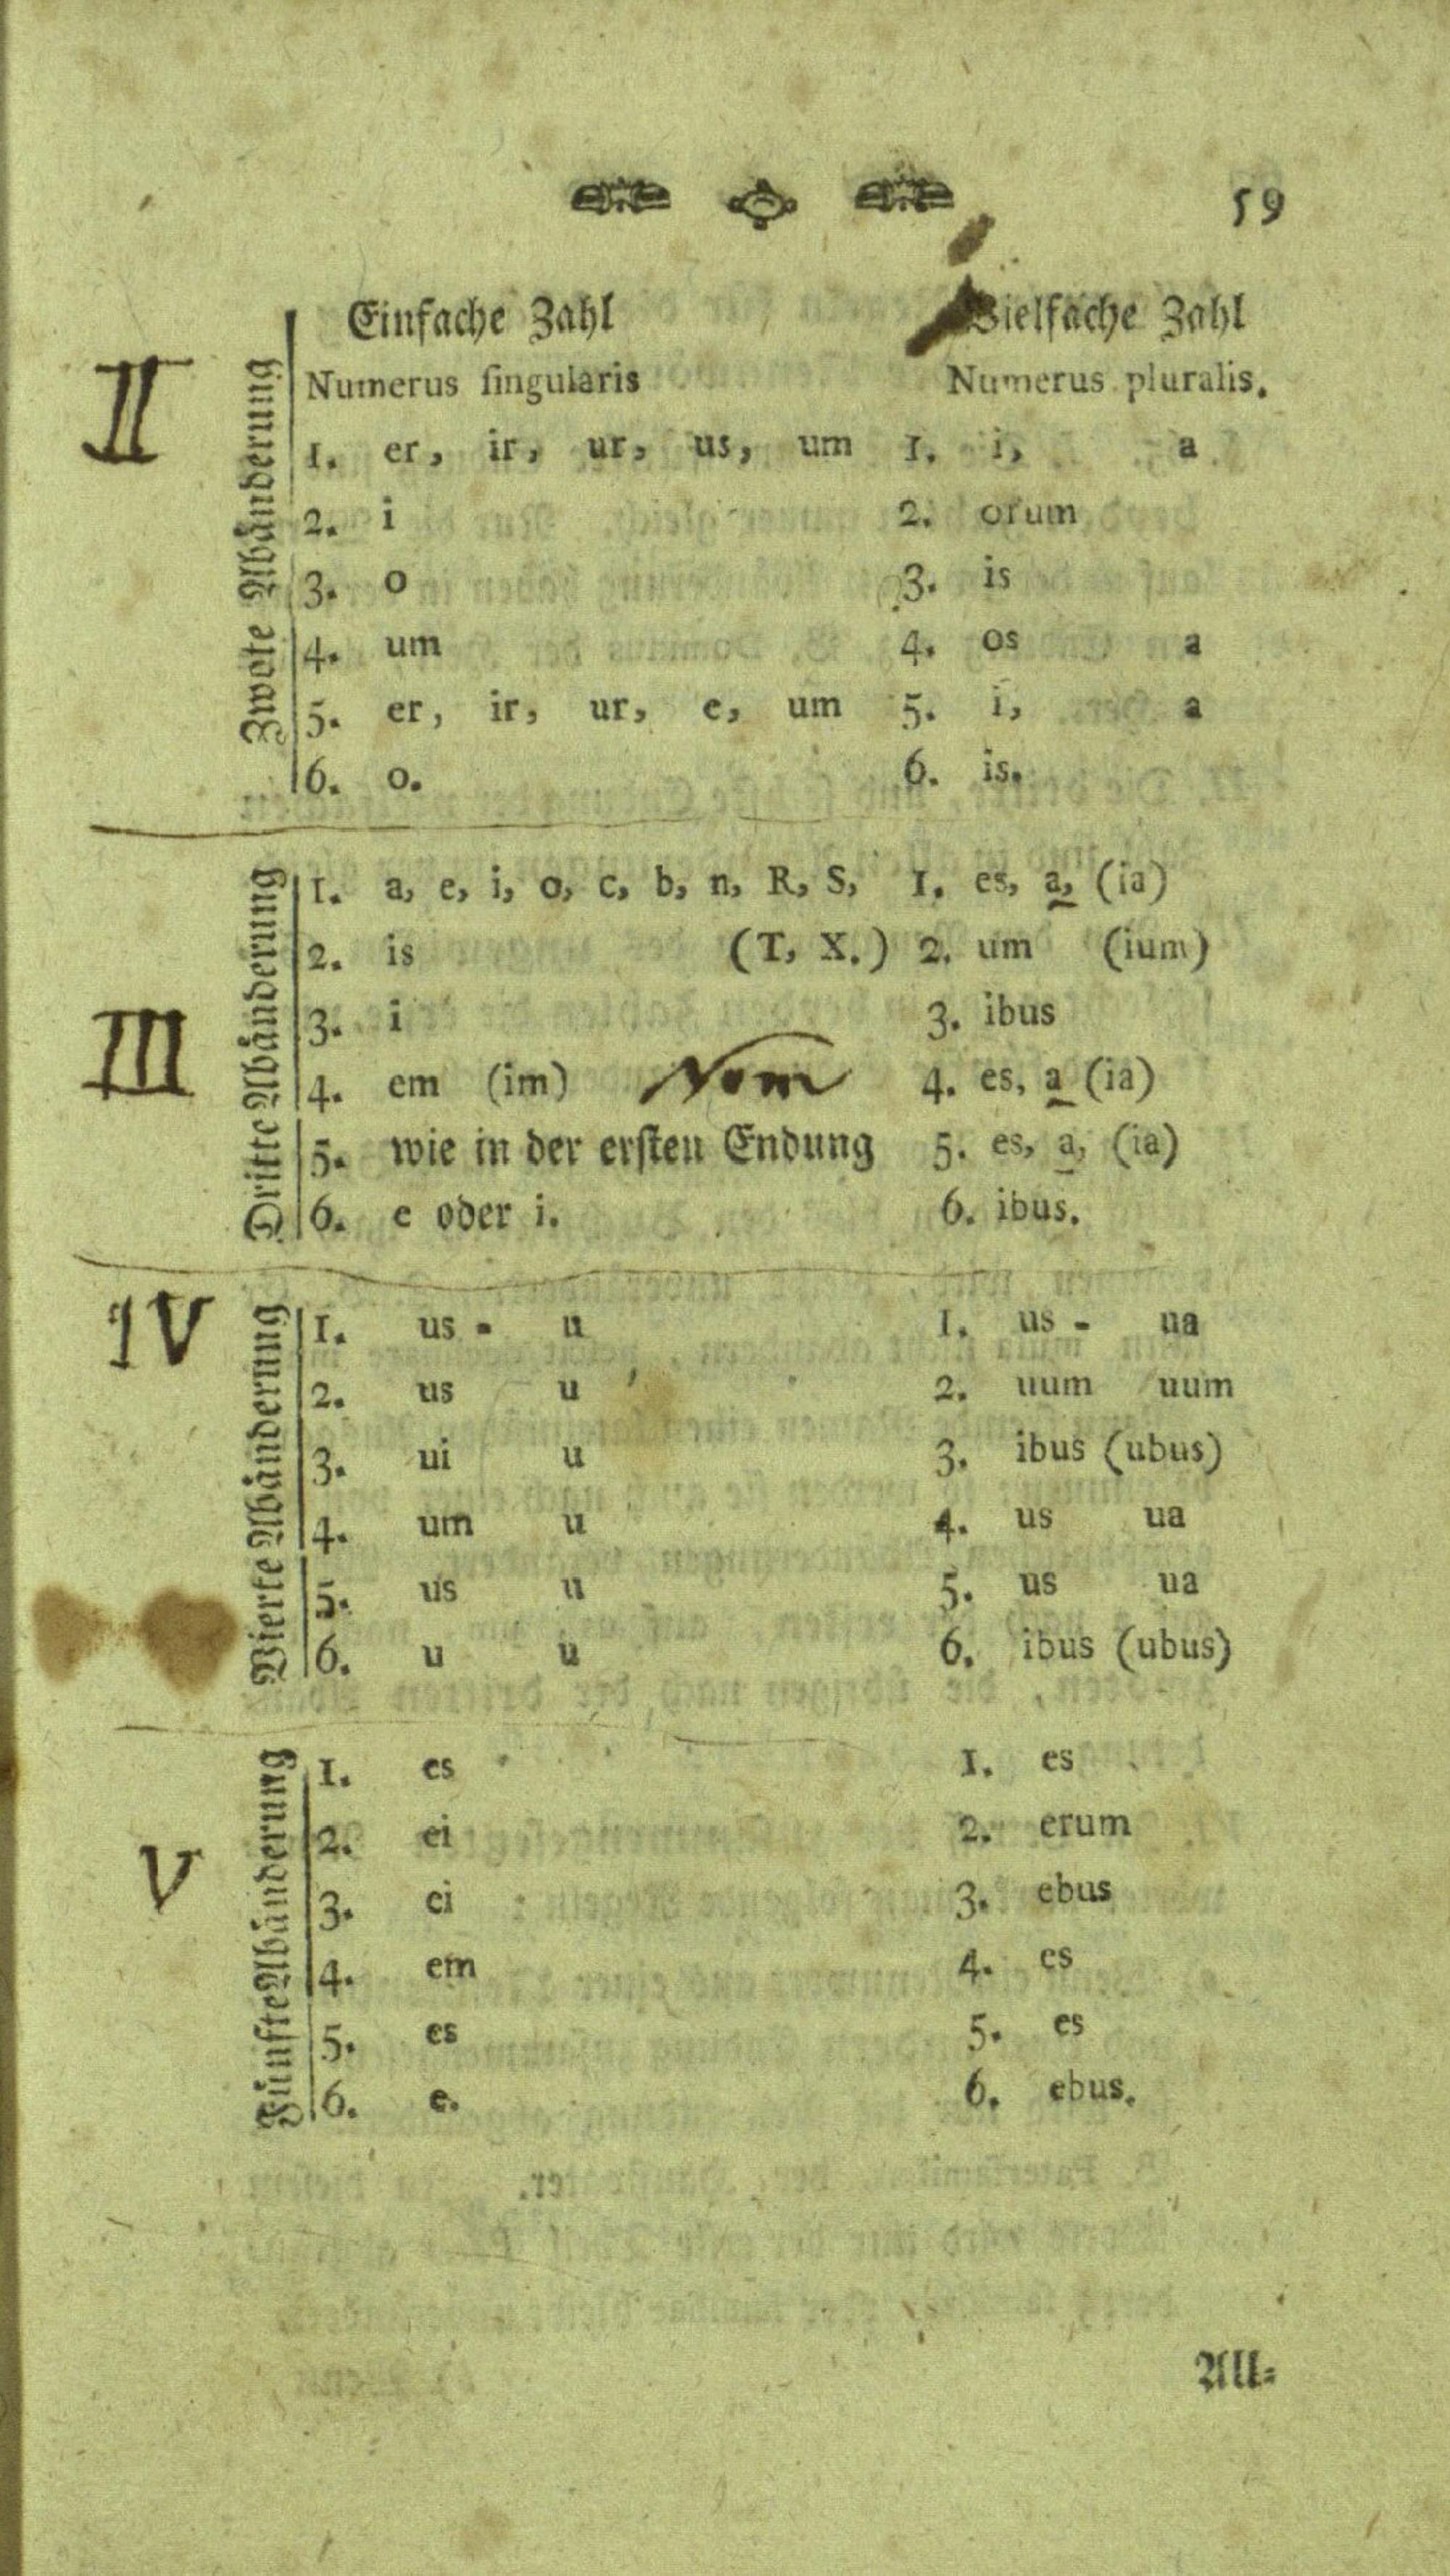 59
Einfache Zahl Vielfache Zahl
Numerus ſingularis Numerus pluralis.
II
Zwote Abänderung
1. er, ir, ur, us, um 1. i, a
2. i 2. orum
3. o 3. is
4. um 4. os a
5. er, ir, ur, e, um 5. i, a
6. o. 6. is.
III
Dritte Abänderung
1. a, e, i, o, c, b, n, R, S, 1. es, a, (ia)
2. is (T, X.) 2. um (ium)
3. i 3. ibus
4. em (im) Nom 4. es, a (ia)
5. wie in der erſten Endung 5. es, a, (ia)
6. e oder i. 6. ibus.
IV
Vierte Abänderung
1. us - u 1. us - ua
2. us u 2. uum uum
3. ui u 3. ibus (ubus)
4. um u 4. us ua
5. us u 5. us ua
6. u u 6. ibus (ubus)
V
Fünfte Abänderung
1. es 1. es
2. ei 2. erum
3. ei 3. ebus
4. em 4. es
5. es 5. es
6. e. 6. ebus.
All⸗